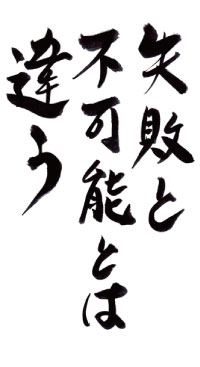 失敗と
不可能とは
違う